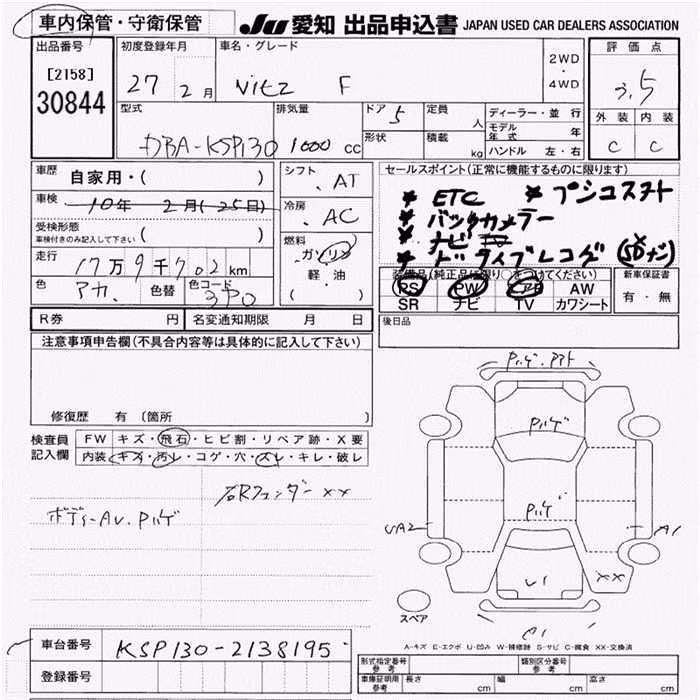 車内保管・守衛保管
JU 愛知 出品申込書 JAPAN USED CAR DEALERS ASSOCIATION
出品番号
[2158]
30844
初度登録年月
27 2月
車名・グレード
Vitz F
2WD
・
4WD
評価点
3.5
外装 内装
C C
型式
DBA-KSP130
排気量
1000 cc
ドア
5
形状
定員
人
積載
kg
ディーラー・並行
モデル年式 年
ハンドル 左・右
車歴
自家用・( )
車検
10年 2月(25日)
受検形態
車検付きのみ記入して下さい ( )
走行
17万9千702km
色
アカ.
色替
色コード
3P0
シフト
AT
冷房
AC
燃料
ガソリン
軽・油
( )
セールスポイント(正常に機能するものに限ります)
* ETC * プシュスタート
* バックカメラー
* ナビ TV
* ドライブレコダ (SDナシ)
装備品(純正品に限り○をつけてください)
PS PW AB AW
SR ナビ TV カワシート
新車保証書
有・無
R券 円
名変通知期限 月 日
後日品
注意事項申告欄(不具合内容等は具体的に記入して下さい)
修復歴 有(箇所 )
検査員記入欄
FW キズ・飛石・ヒビ割・リペア跡・X要
内装 キズ・汚レ・コゲ・穴・スレ・キレ・破レ
右Rフェンダー××
ボディーAU.Pハゲ
Pハゲ.アト
Pハゲ
Pハゲ
UA2
A1
U1
××
スペア
A-キズ E-エクボ U-凹み W-補修跡 S-サビ C-腐食 XX-交換済
車台番号
KSP130-2138195
登録番号
形式指定番号 参考
類別区分番号 参考
車庫証明用 参考
長さ cm
幅 cm
高さ cm